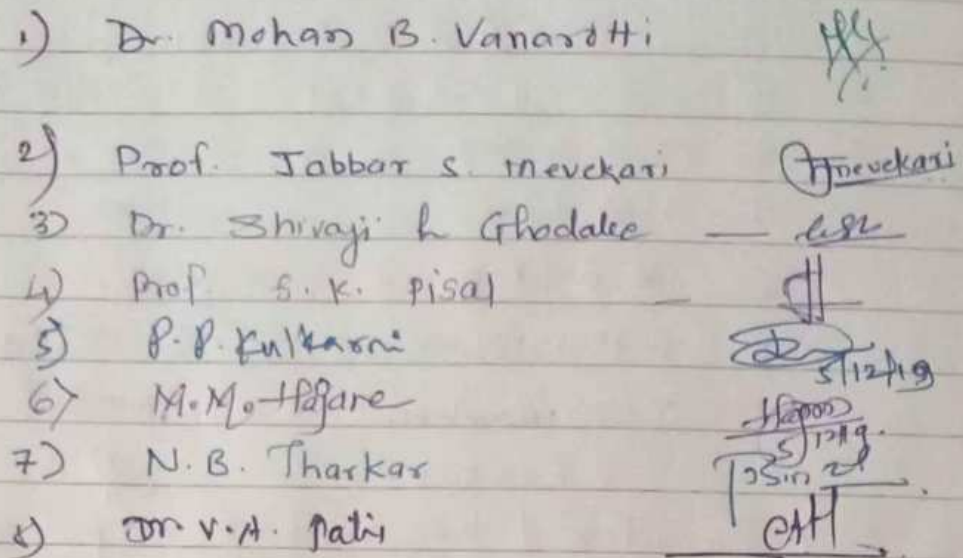 1) Dr. Mohan B. Vanarotti
2) Prof. Jabbar S. Mevekari Mevekari
3) Dr. Shivaji h Ghodake —
4) Prof. S. K. Pisal —
5) P. P. Kulkarni 5/12/19
6) M. M. Hajare 5/12/19.
7) N. B. Tharkar
8) Dr V. A. Patil